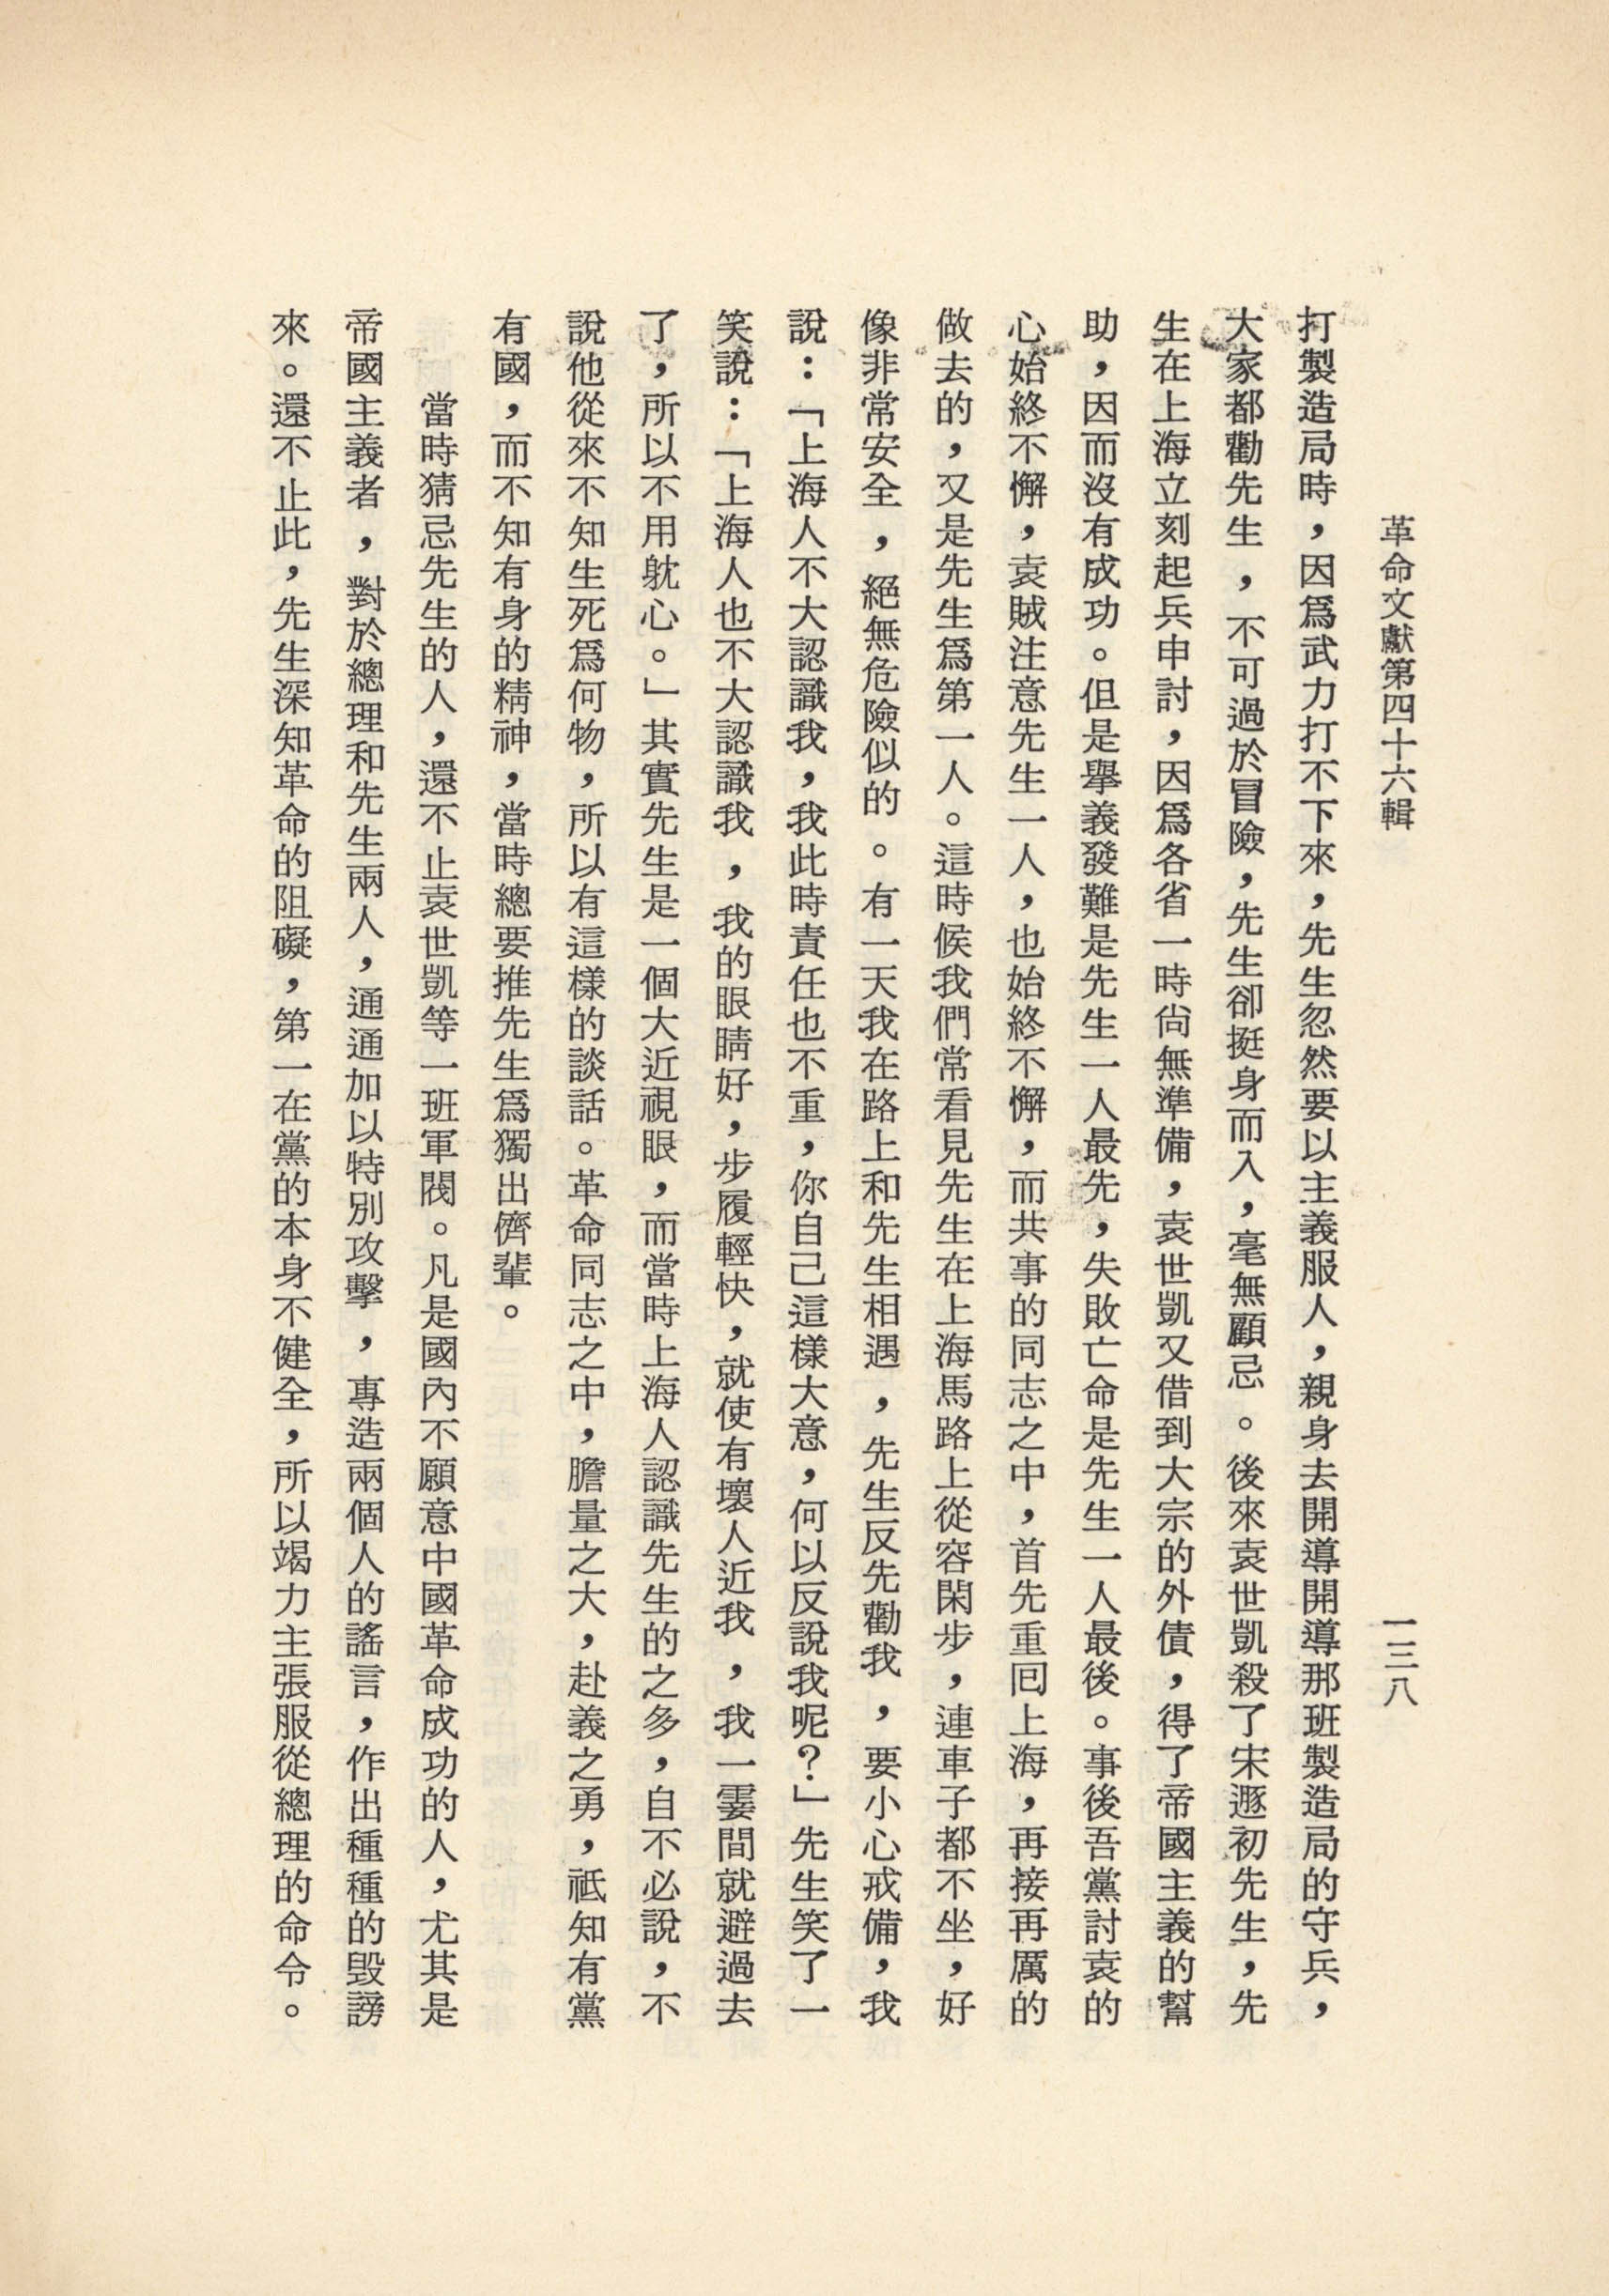 革命文獻第四十六輯
一三八
打製造局時，因爲武力打不下來，先生忽然要以主義服人，親身去開導開導那班製造局的守兵，
大家都勸先生，不可過於冒險，先生卻挺身而入，毫無顧忌。後來袁世凱殺了宋遯初先生，先
生在上海立刻起兵申討，因爲各省一時尙無準備，袁世凱又借到大宗的外債，得了帝國主義的幫
助，因而沒有成功。但是舉義發難是先生一人最先，失敗亡命是先生一人最後。事後吾黨討袁的
心始終不懈，袁賊注意先生一人，也始終不懈，而共事的同志之中，首先重囘上海，再接再厲的
做去的，又是先生爲第一人。這時候我們常看見先生在上海馬路上從容閑步，連車子都不坐，好
像非常安全，絕無危險似的。有一天我在路上和先生相遇，先生反先勸我，要小心戒備，我
說：「上海人不大認識我，我此時責任也不重，你自己這樣大意，何以反說我呢？」先生笑了一
笑說：「上海人也不大認識我，我的眼睛好，步履輕快，就使有壞人近我，我一霎間就避過去
了，所以不用躭心。」其實先生是一個大近視眼，而當時上海人認識先生的之多，自不必說，不
說他從來不知生死爲何物，所以有這樣的談話。革命同志之中，膽量之大，赴義之勇，祗知有黨
有國，而不知有身的精神，當時總要推先生爲獨出儕輩。
當時猜忌先生的人，還不止袁世凱等一班軍閥。凡是國內不願意中國革命成功的人，尤其是
帝國主義者，對於總理和先生兩人，通通加以特別攻擊，專造兩個人的謠言，作出種種的毀謗
來。還不止此，先生深知革命的阻礙，第一在黨的本身不健全，所以竭力主張服從總理的命令。